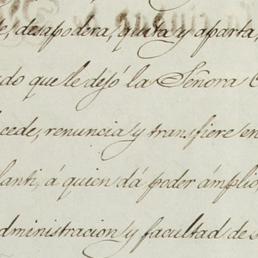 desapodera, quita y aparta,
do que le dejó la Señora
cede, renuncia y transfiere en
á quien dá poder ámplio
dministracion y facultad de